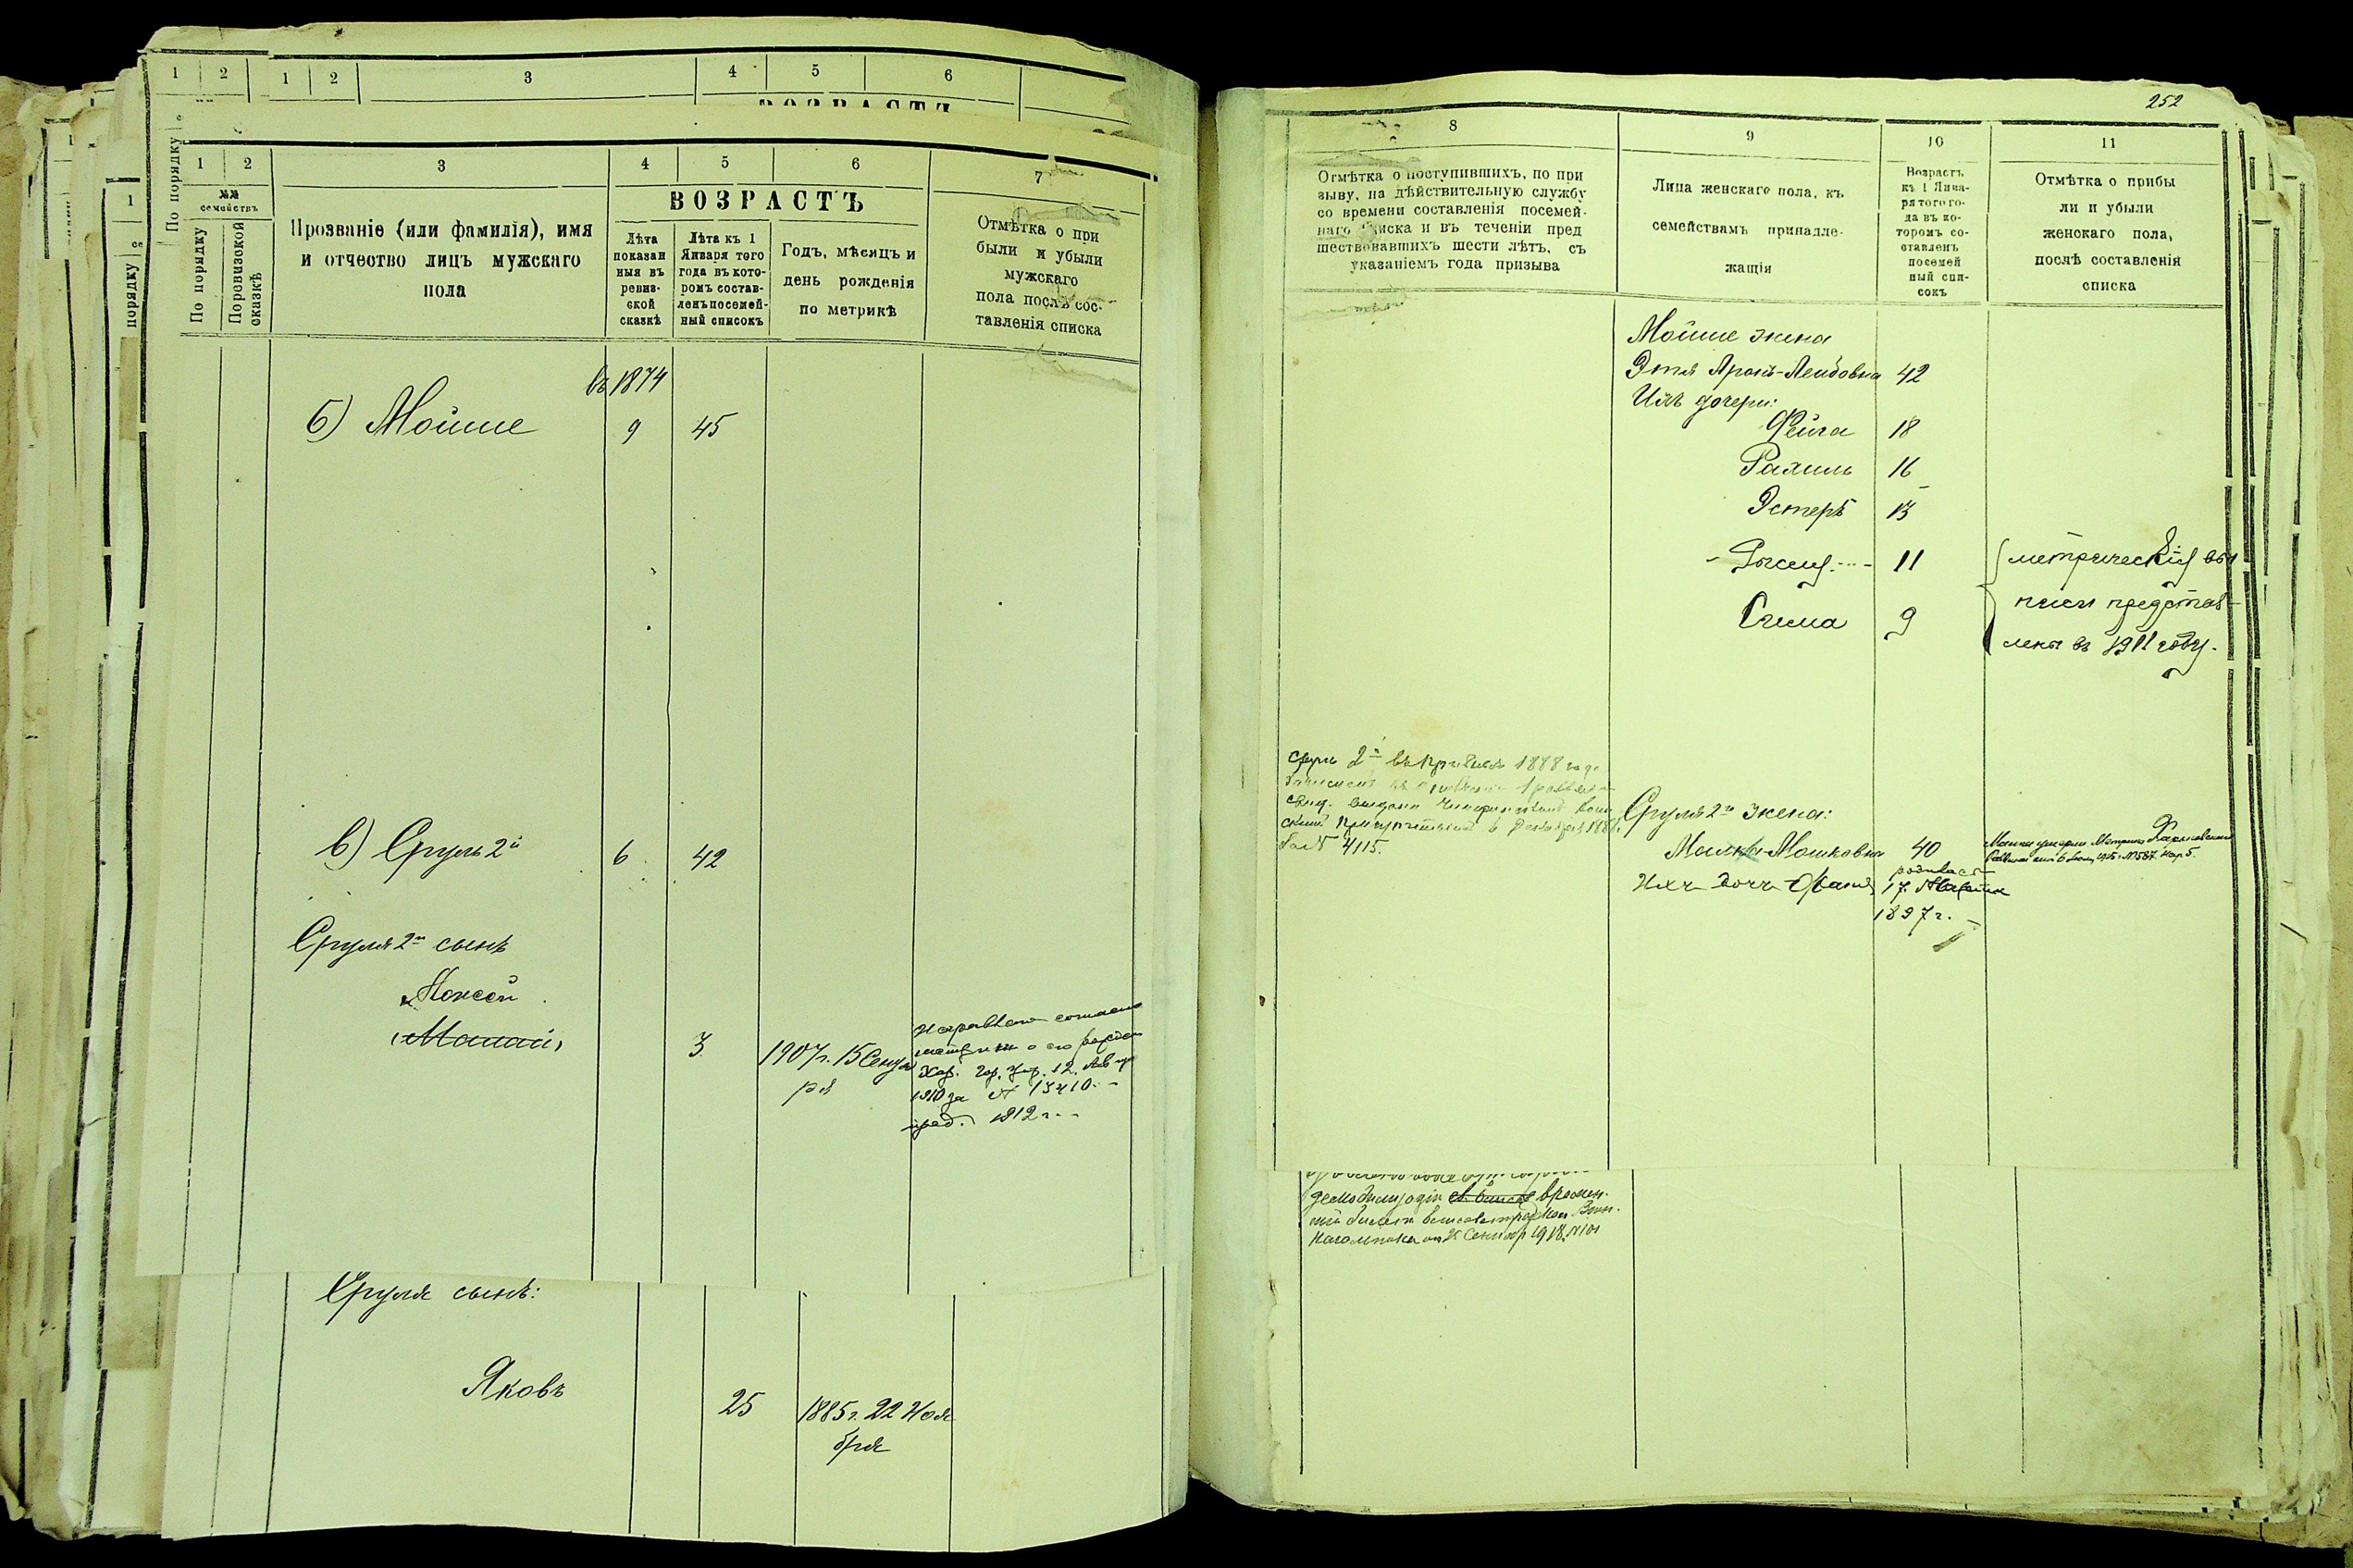 1 2 1 2 3 4 5 6
ВОЗРАСТЪ
По порядку
1 2 3 4 5 6 7
№№
семействъ
По порядку
По ревизской
сказкѣ
Прозваніе (или фамилія), имя
и отчество лицъ мужскаго
пола
ВОЗРАСТЪ
Лѣта
показан
ныя въ
ревиз-
ской
сказкѣ
Лѣта къ 1
Января того
года въ кото-
ромъ состав-
ленъ посемей-
ный списокъ
Годъ, мѣсяцъ и
день рожденія
по метрикѣ
Отмѣтка о при
были и убыли
мужскаго
пола послѣ сос-
тавленія списка
въ 1874
б) Мойше 9 45
в) Сруль 2й 6 42
Сруля 2го сынъ
Моисей
3 1907 г. 15 Сентя
ря
1910 за № 13410
1912 г.
Сруля сынъ:
Яковъ 25 1885 г. 22 Ноя
бря
252
8 9 10 11
Отмѣтка о поступившихъ, по при
зыву, на дѣйствительную службу
со времени составленія посемей-
наго списка и въ теченіи пред
шествовавшихъ шести лѣтъ, съ
указаніемъ года призыва
Лица женскаго пола, къ
семействамъ принадле-
жащія
Возрастъ
къ 1 Янва-
ря того го-
да въ ко-
торомъ со-
ставленъ
посемей
ный спи-
сокъ
Отмѣтка о прибы
ли и убыли
женскаго пола,
послѣ составленія
списка
Мойше жена
Этя Аронъ-Лейбовна 42
Ихъ дочери:
Фейга 18
Рахиль 16
Эстеръ 13
11 метрическія вы
Сима 9 писи представ-
лены въ 1911 году.
Сруль 2й въ призывъ 1888 года
№ 4115.
Сруля 2го жена:
Мошковна 40
Ихъ дочь Фаня родилась
17 Марта
1897 г.